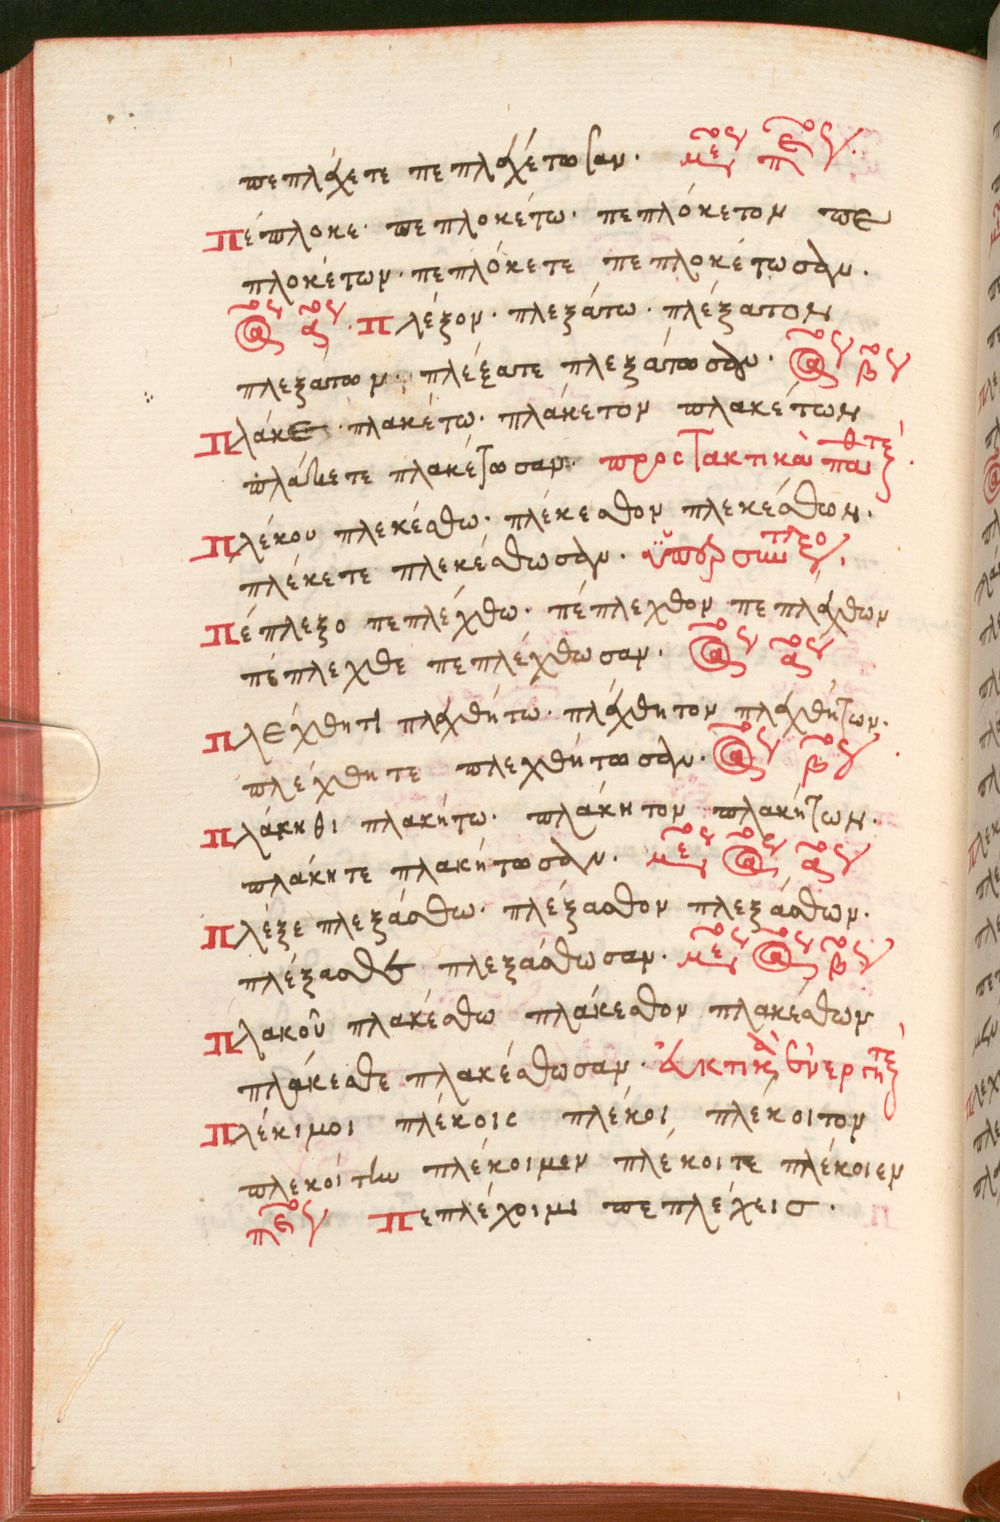 πεπλέχετε πεπλεχέτωσαν.
Πέπλοκε· πεπλοκέτω· πεπλόκετον πε
πλοκέτων· πεπλόκετε πεπλοκέτωσαν.
Πλέξον· πλεξάτω· πλέξατον
πλεξάτων· πλέξατε πλεξάτωσαν.
Πλάκε· πλακέτω· πλάκετον πλακέτων
πλάκετε πλακέτωσαν· προστακτικὰ
Πλέκου πλεκέσθω· πλέκεσθον πλεκέσθων.
πλέκετε πλεκέσθωσαν.
Πέπλεξο πεπλέχθω· πέπλεχθον πεπλέχθων
πέπλεχθε πεπλέχθωσαν.
Πλέχθητι πλεχθήτω· πλέχθητον πλεχθήτων.
πλέχθητε πλεχθήτωσαν.
Πλάκηθι πλακήτω· πλάκητον πλακήτων.
πλάκητε πλακήτωσαν.
Πλέξε πλεξάσθω· πλέξασθον πλεξάσθων.
πλέξασθε πλεξάσθωσαν.
Πλακοῦ πλακέσθω πλάκεσθον πλακέσθων
πλάκεσθε πλακέσθωσαν.
Πλέκιμοι πλέκοις πλέκοι πλέκοιτον
πλεκοίτην πλέκοιμεν πλέκοιτε πλέκοιεν
Πεπλέχοιμι πεπλέχεισ.